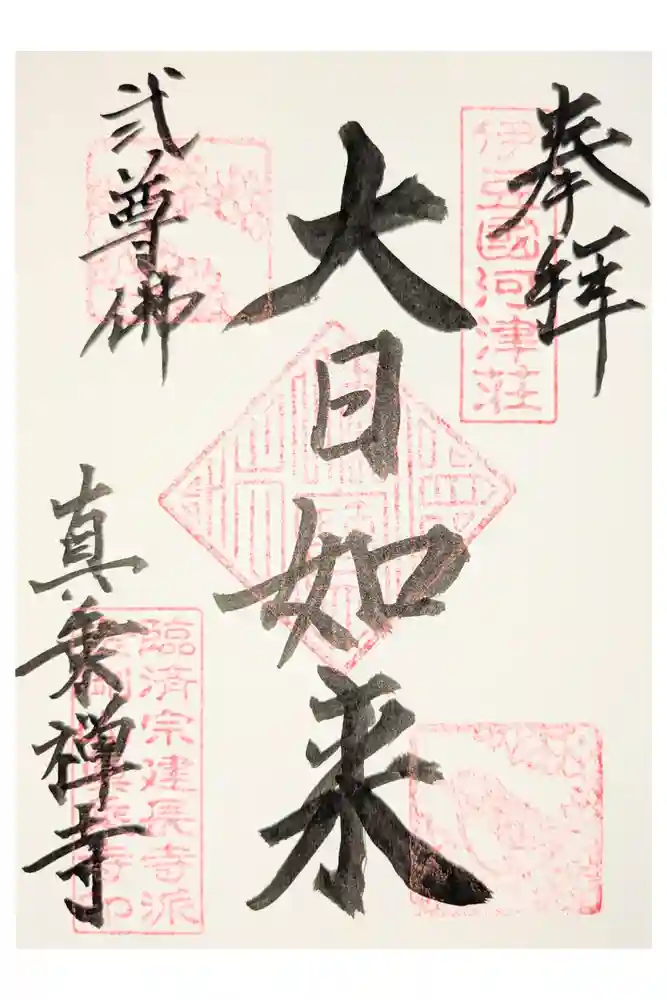 奉拝
伊豆國河津荘
大日如来
弐尊佛
真乗禅寺
臨済宗建長寺派